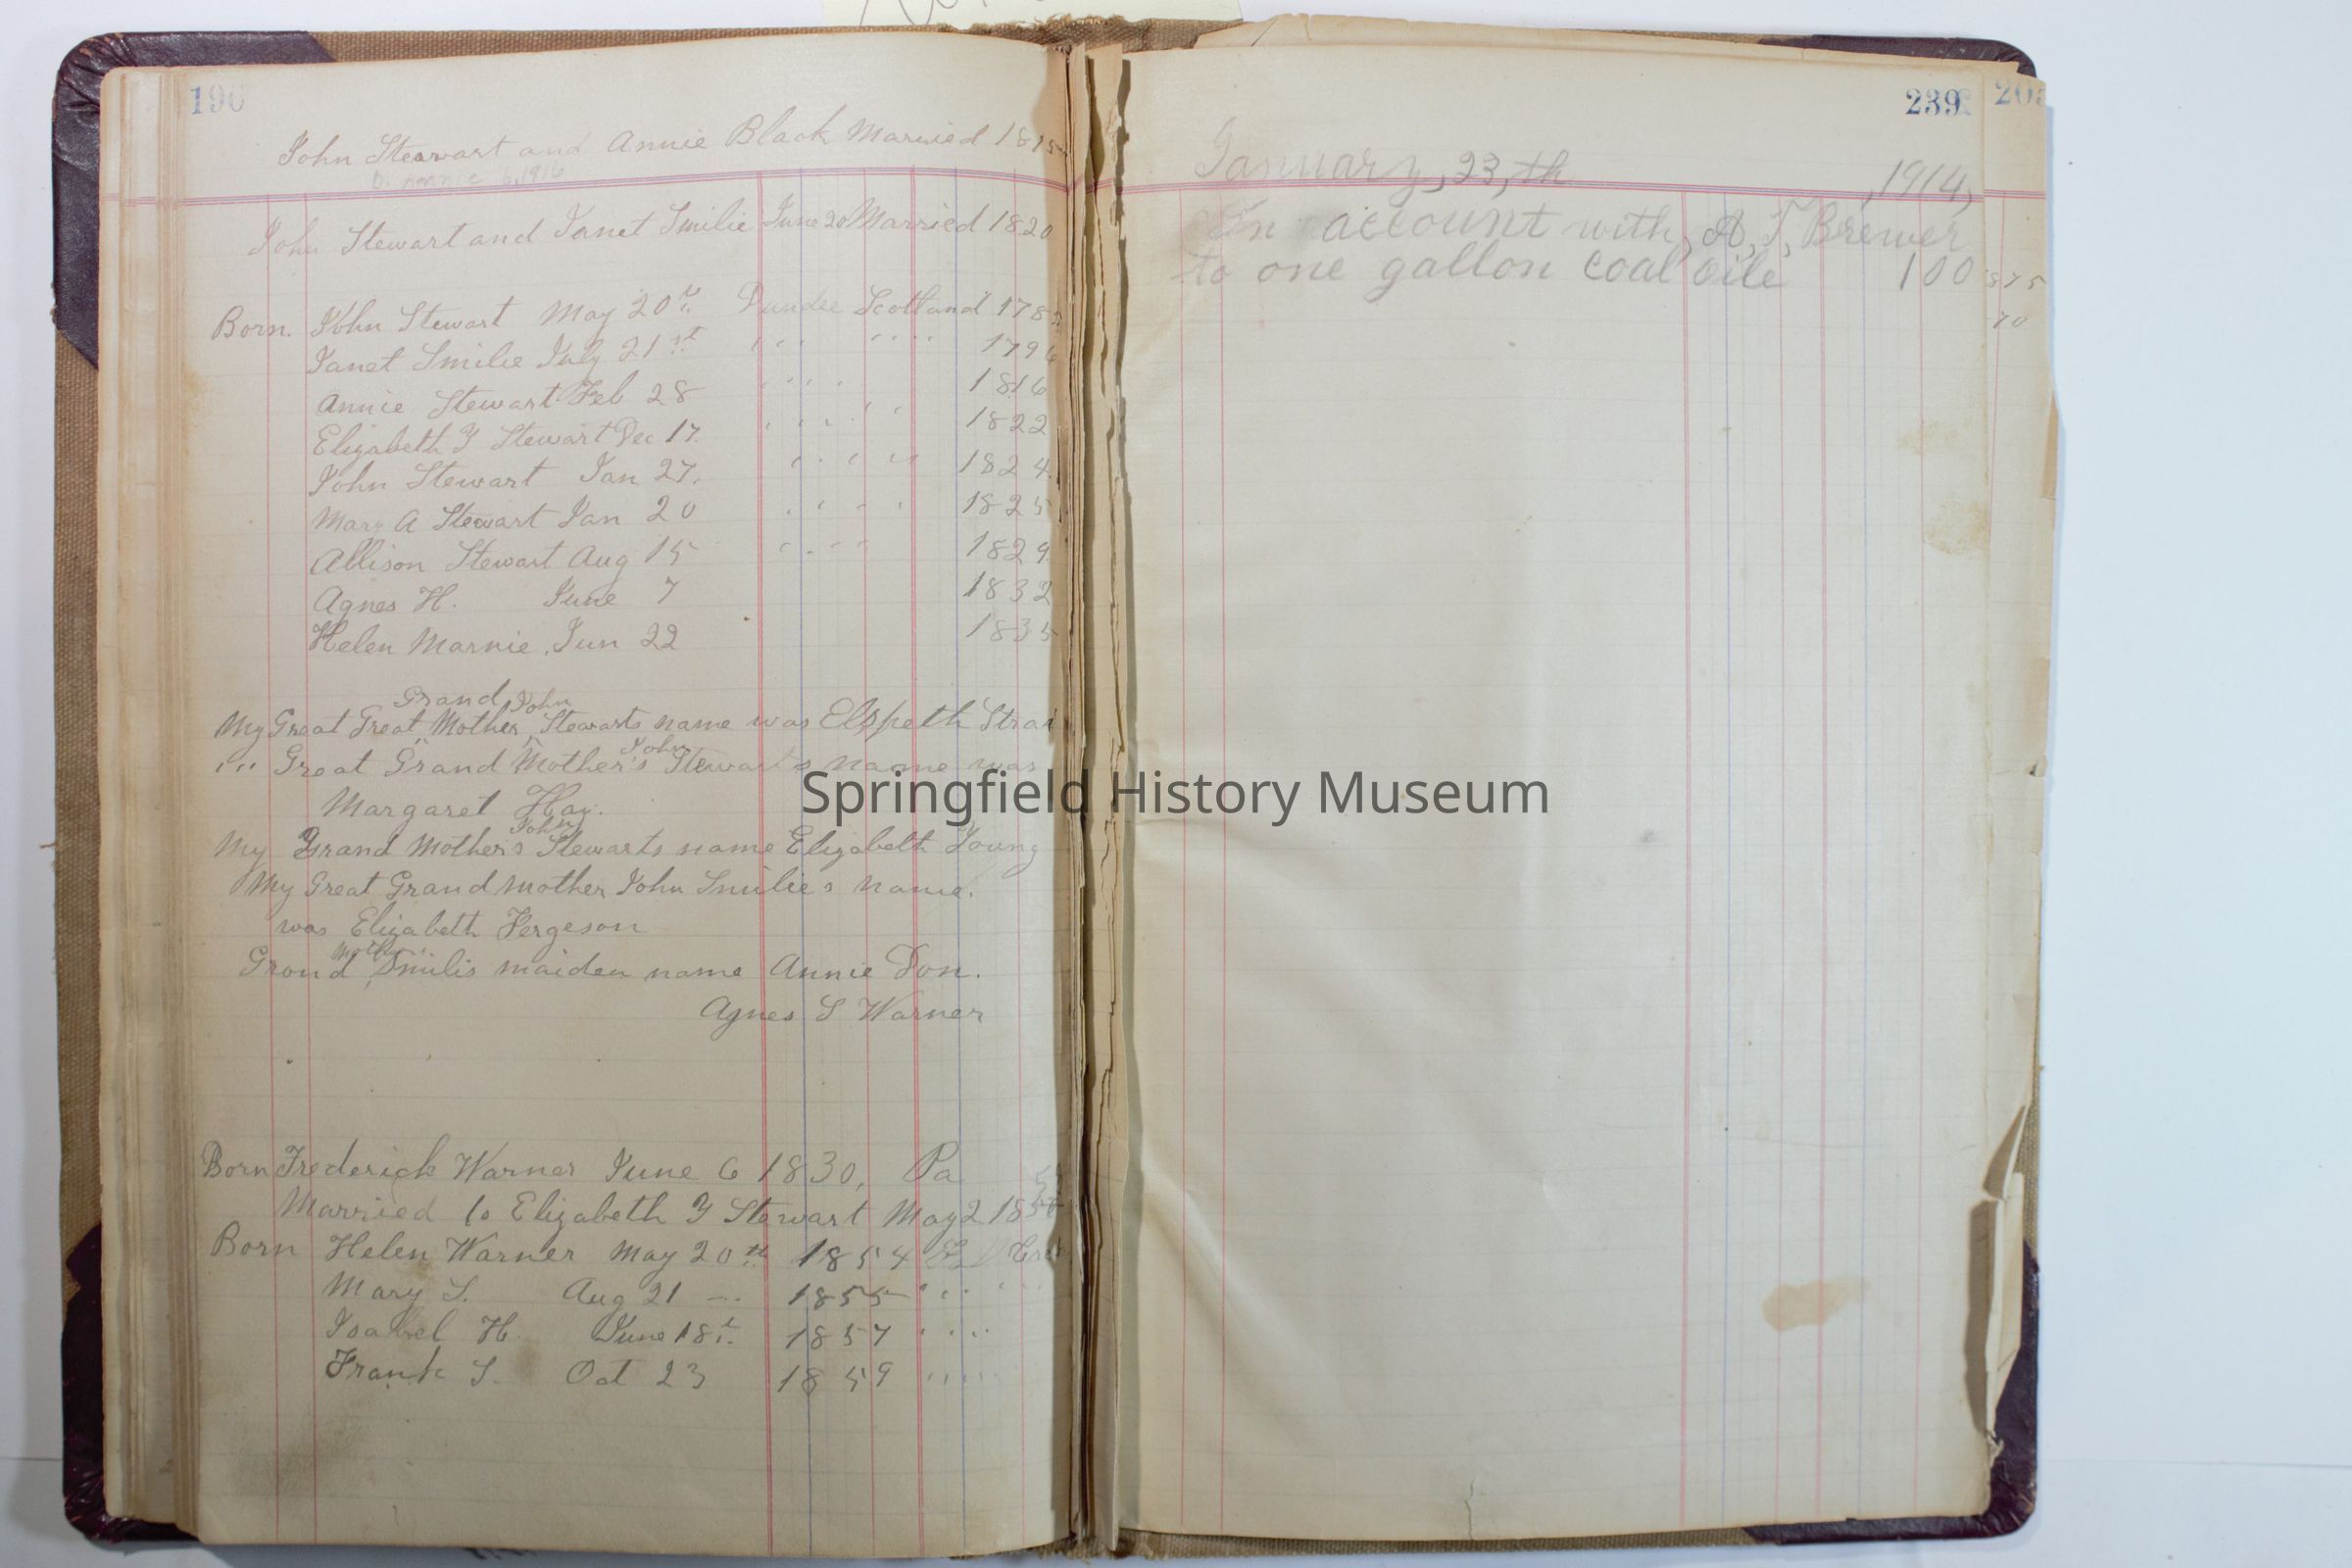 190
John Stewart and Annie Black Married 1815
John Stewart and Janet Smilie June 20 Married 1820
Born. John Stewart May 20th Dundee Scotland 178
Janet Smilie July 21st " " 1796
Annie Stewart Feb 28 " " 1816
Elizabeth Y Stewart Dec 17. " " 1822
John Stewart Jan 27. " " 1824.
Mary A Stewart Jan 20 " " 1825
Allison Stewart Aug 15 " " 1829.
Agnes H. June 7 1832
Helen Marnie. Jun 22 1835
Grand John
My Great Great Mother Stewarts name was Elspeth Strai
John
" Great Grand Mother's Stewarts name was
Margaret Hay.
John
My Grand Mother's Stewarts name Elizabeth Young
My Great Grand mother John Smilie's name.
was Elizabeth Fergeson
Mother
Grand Smilis maiden name Annie Don.
Agnes S Warner
Born Frederick Warner June 6 1830, Pa
Married to Elizabeth Y Stewart May 2 18
Born Helen Warner May 20th 1854
Mary S. Aug 21 " 1855 " "
Isabel H. June 18t. 1857 " "
Frank S. Oct 23 1859 " "
239
205
January, 23, th ,1914,
In account with, A, T, Brewer
to one gallon coal oile 100
875
70
Springfield History Museum